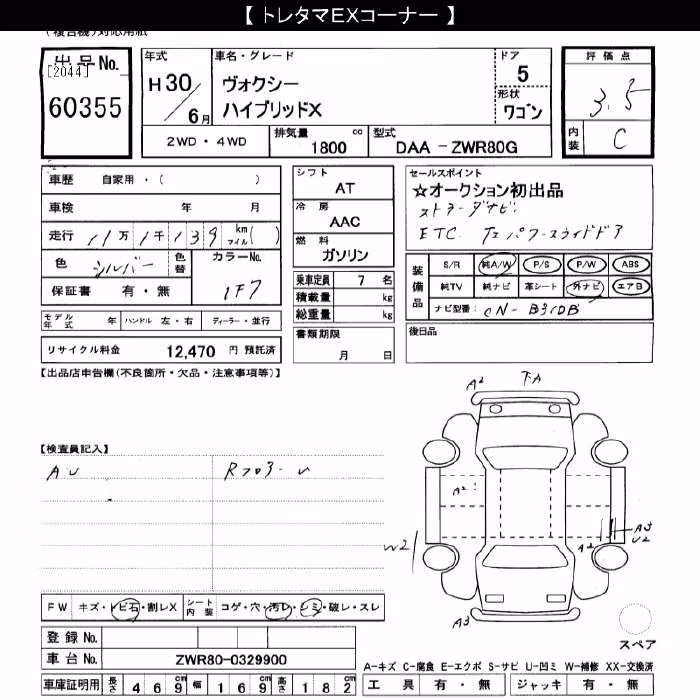 【 トレタマEXコーナー 】
(複合機)対応用紙
出品No.
[2044]
60355
年式
H30/6月
車名・グレード
ヴォクシー
ハイブリッドX
ドア
5
形状
ワゴン
評価点
3.5
内装
C
2WD・4WD
排気量 cc
1800
型式
DAA－ZWR80G
車歴 自家用・( )
車検 年 月
走行 11万1千139 km マイル( )
色 シルバー 色替
カラーNo.
1F7
保証書 有・無
モデル年式 年 ハンドル 左・右 ディーラー・並行
リサイクル料金 12,470 円 預託済
シフト
AT
冷房
AAC
燃料
ガソリン
乗車定員 7 名
積載量 kg
総重量 kg
書類期限
月 日
セールスポイント
☆オークション初出品
ストラーダナビ
ETC 左パワースライドドア
装備品
S/R 純A/W P/S P/W ABS
純TV 純ナビ 革シート 外ナビ エアB
ナビ型番:
後日品
【出品店申告欄(不良箇所・欠品・注意事項等)】
【検査員記入】
AU
Rフロア-U
A2
下A
A2
W2
A2
A3
U2
A3
スペア
FW キズ・トビ石・割レX シート内装 コゲ・穴・汚レ・シミ・破レ・スレ
登録No.
車台No. ZWR80-0329900
車庫証明用 長さ 469cm 幅 169cm 高さ 182cm
A-キズ C-腐食 E-エクボ S-サビ U-凹ミ W-補修 XX-交換済
工具 有・無 ジャッキ 有・無